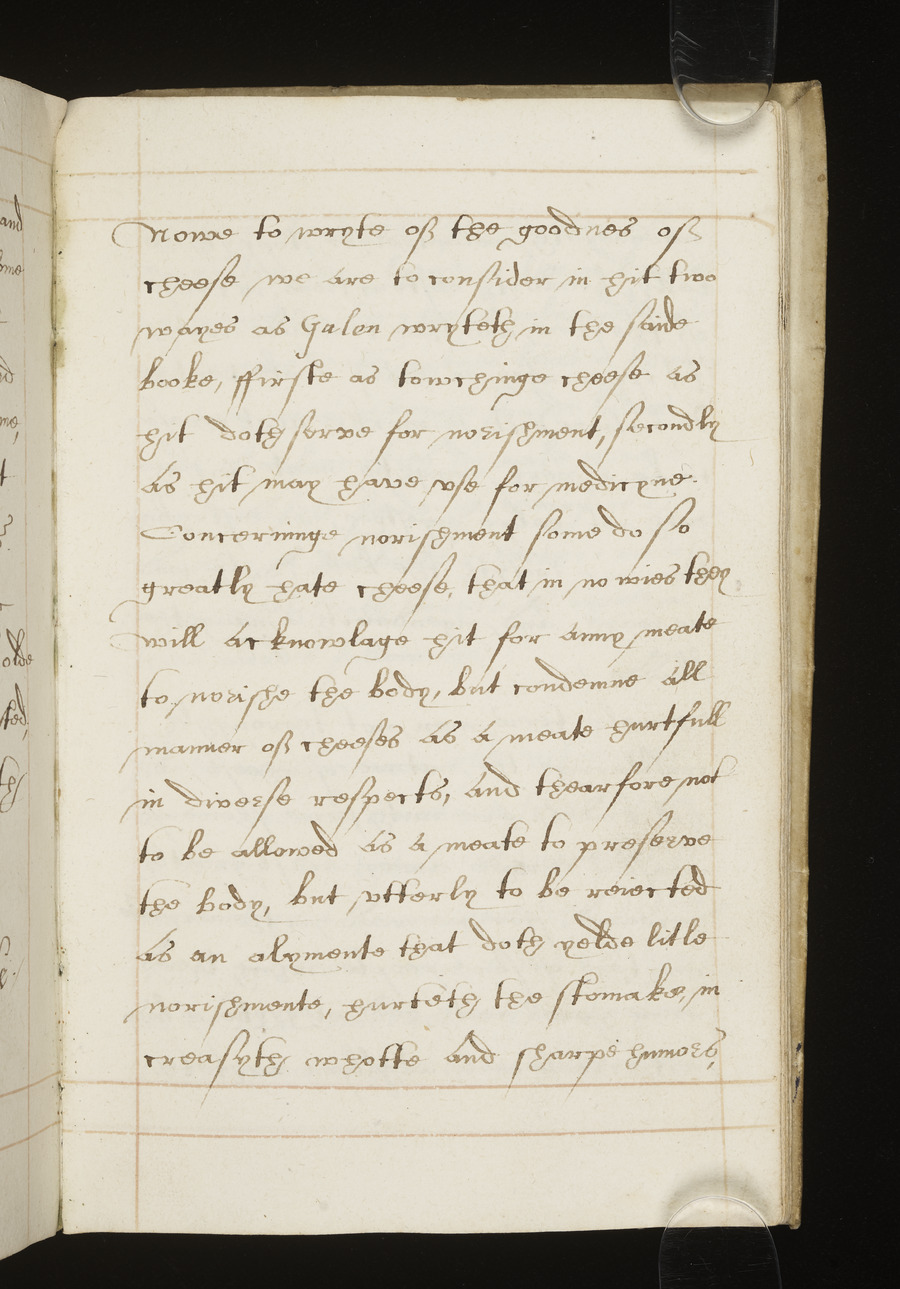 and
me,
olde
sted,
th
Nowe to wryte off the goodnes off
cheese we are to consider in hit two
wayes as Galen wryteth in the saide
booke, ffirste as towchinge cheese as
hit doth serve for norishment, secondly
as hit may have vse for medicyne.
Concerninge norishment some do so
greatly hate cheese, that in no wies they
will acknowlage hit for anny meate
to norishe the body, but condemne all
manner off cheeses as a meate hurtfull
in diverse respects, and thearfore not
to be allowed as a meate to preserve
the body, but vtterly to be reiected
as an alymente that doth yelde litle
norishmente, hurteth the stomake, in
creasyth whotte and sharpe humors,